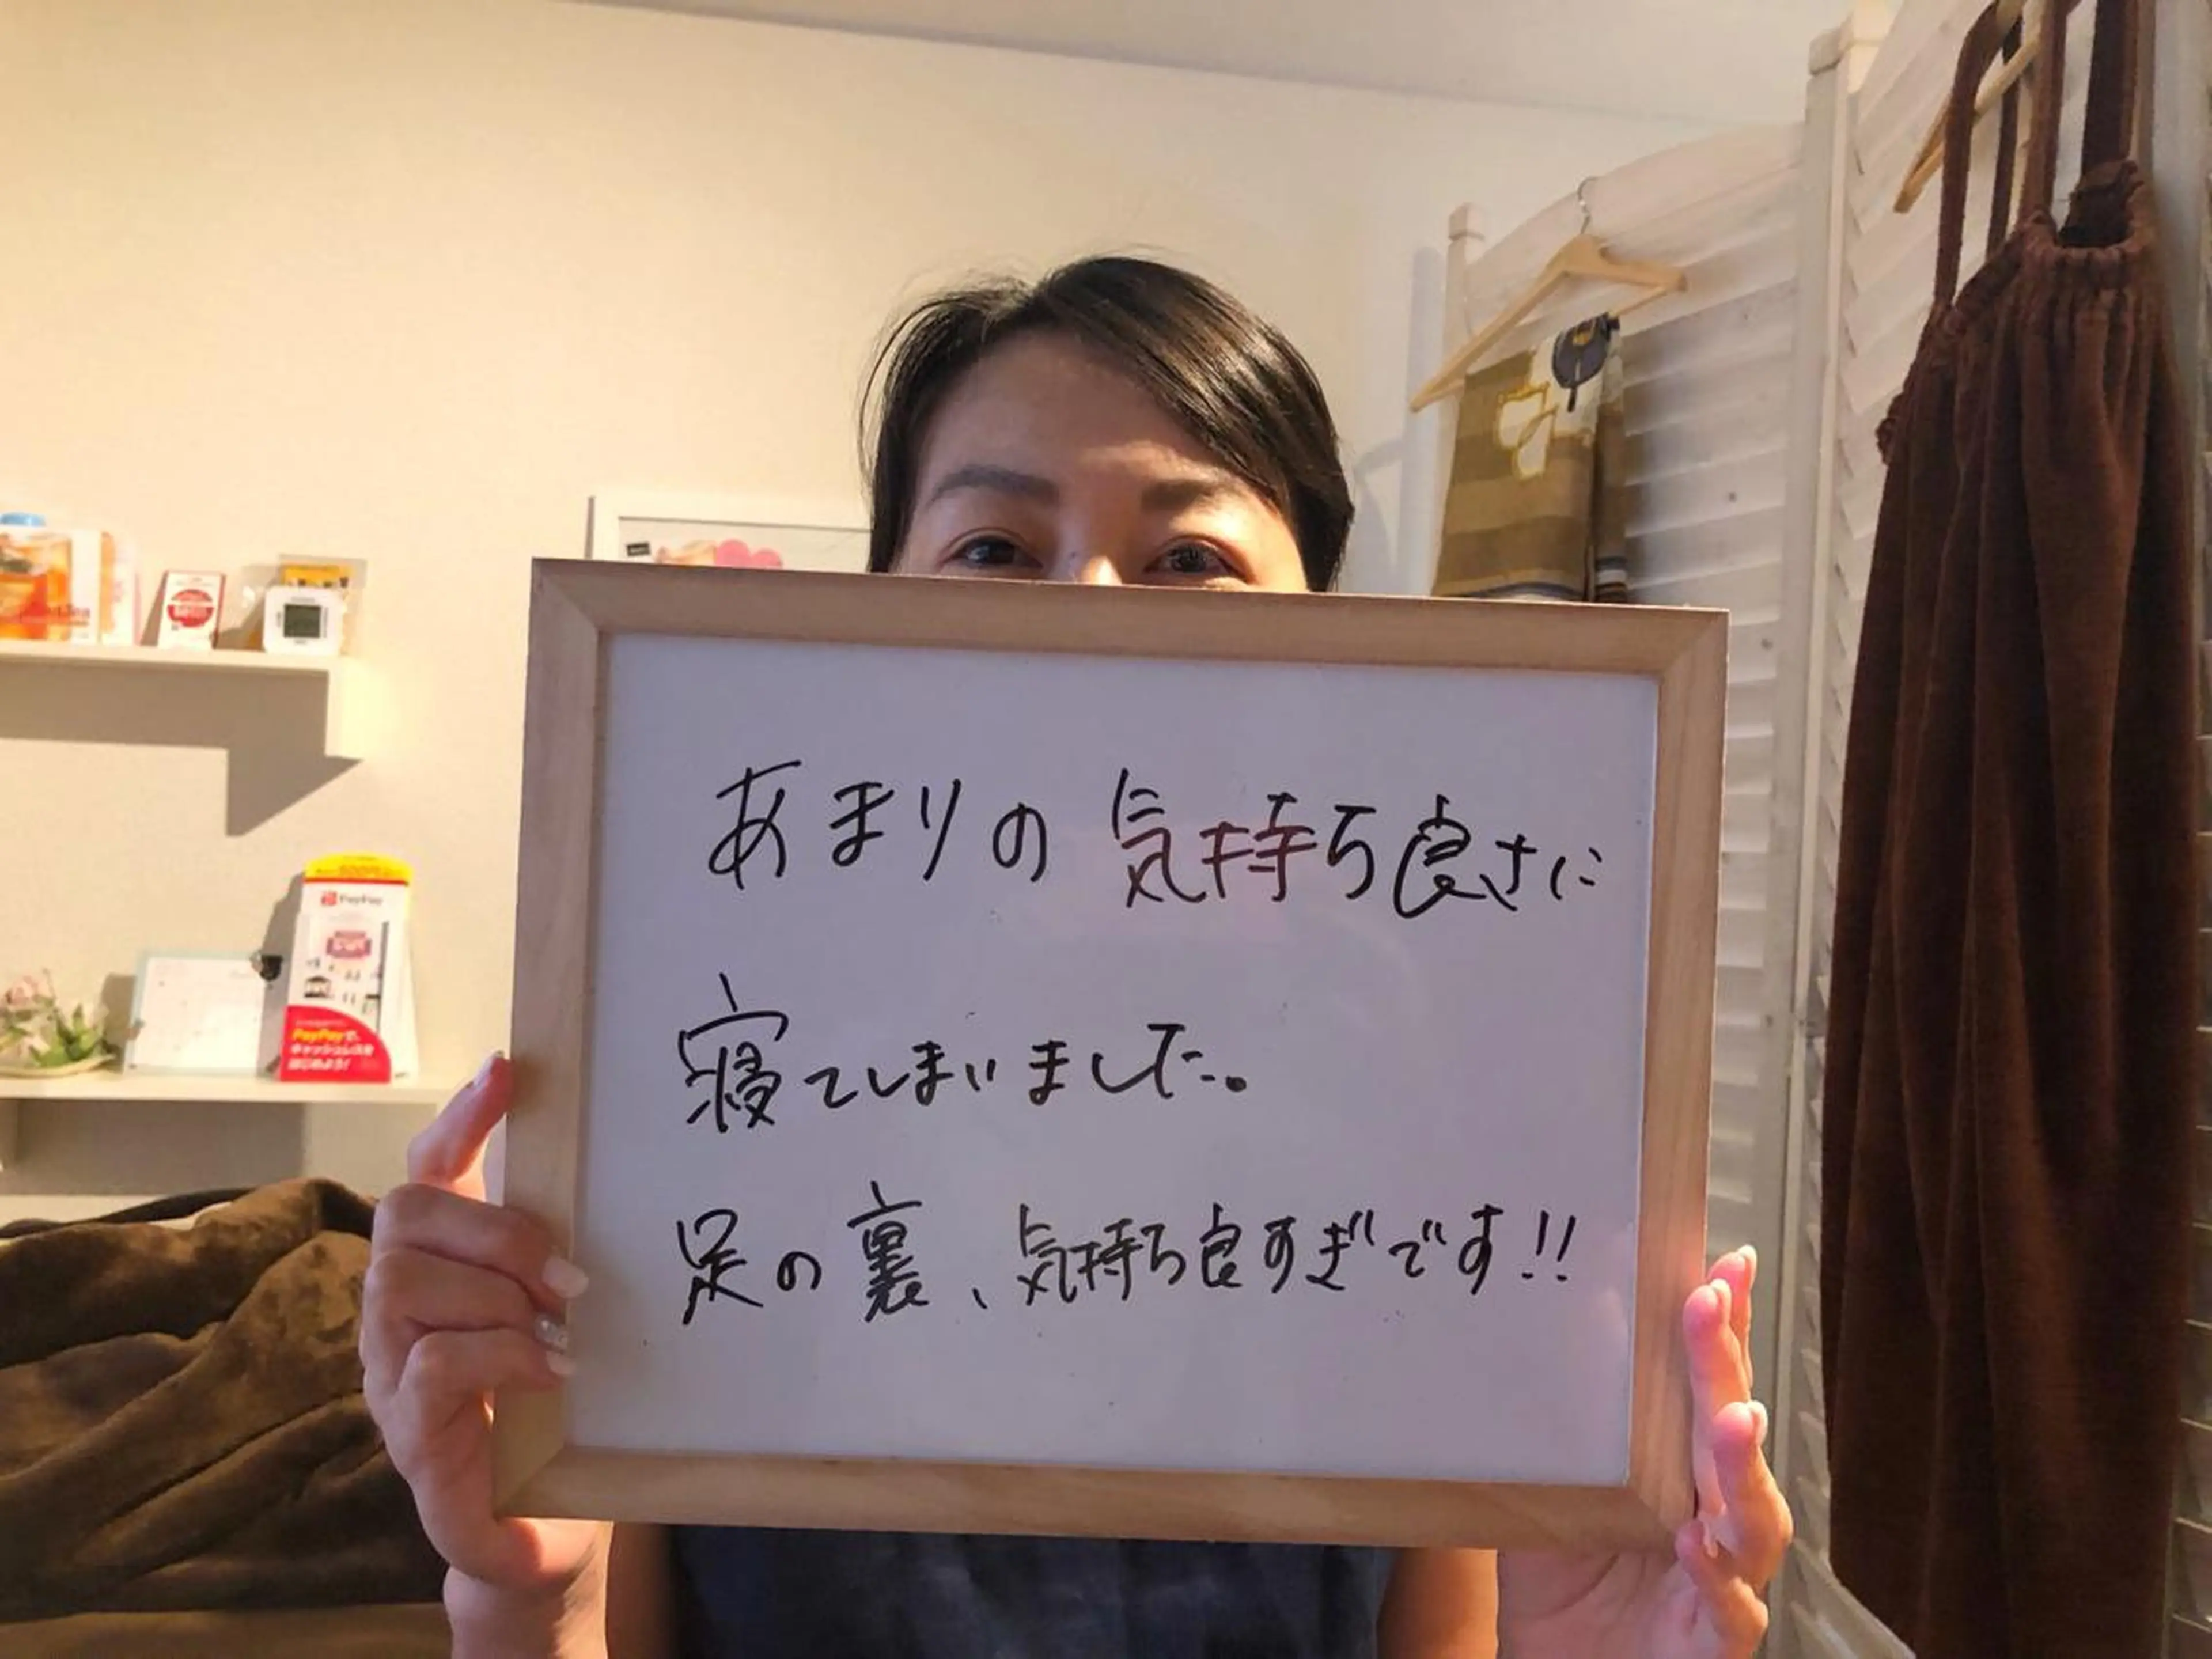 あまりの気持ち良さに
寝てしまいました。
足の裏、気持ち良すぎです!!
PayPay
PayPayで、
キャッシュレスを
はじめよう!